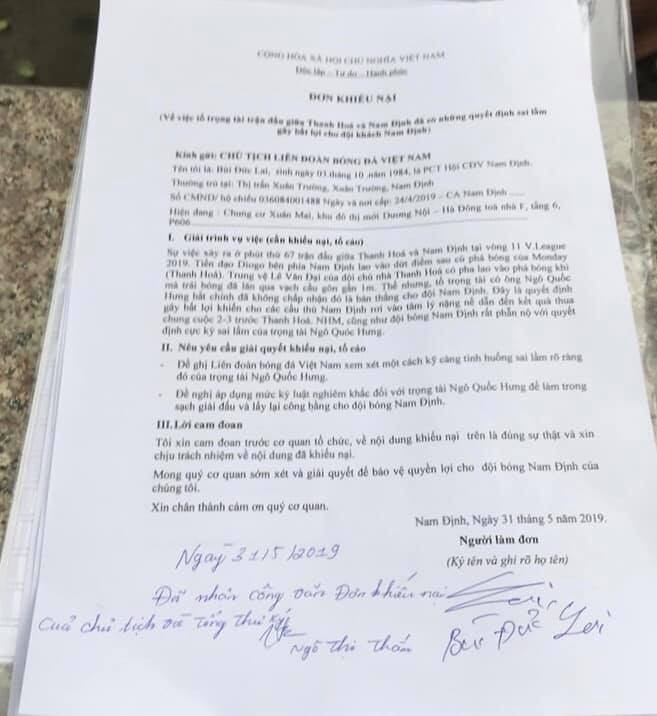 CỘNG HÒA XÃ HỘI CHỦ NGHĨA VIỆT NAM
Độc lập – Tự do – Hạnh phúc
ĐƠN KHIẾU NẠI
(Về việc tổ trọng tài trận đấu giữa Thanh Hoá và Nam Định đã có những quyết định sai lầm
gây bất lợi cho đội khách Nam Định)
Kính gửi: CHỦ TỊCH LIÊN ĐOÀN BÓNG ĐÁ VIỆT NAM
Tên tôi là: Bùi Đức Lai, sinh ngày 03 tháng 10 năm 1984, là PCT Hội CĐV Nam Định.
Thường trú tại: Thị trấn Xuân Trường, Xuân Trường, Nam Định
Số CMND/ hộ chiếu 036084001488 Ngày và nơi cấp: 24/4/2019 – CA Nam Định ......
Hiện đang : Chung cư Xuân Mai, khu đô thị mới Dương Nội – Hà Đông toà nhà F, tầng 6,
P606
I. Giải trình vụ việc (cần khiếu nại, tố cáo)
Sự việc xảy ra ở phút thứ 67 trận đấu giữa Thanh Hoá và Nam Định tại vòng 11 V.League
2019. Tiền đạo Diogo bên phía Nam Định lao vào dứt điểm sau cú phá bóng của Monday
(Thanh Hoá). Trung vệ Lê Văn Đại của đội chủ nhà Thanh Hoá có pha lao vào phá bóng khi
mà trái bóng đã lăn qua vạch cầu gôn gần 1m. Thế nhưng, tổ trọng tài có ông Ngô Quốc
Hưng bắt chính đã không chấp nhận đó là bàn thắng cho đội Nam Định. Đây là quyết định
gây bất lợi khiến các cầu thủ Nam Định rơi vào tâm lý nặng nề dẫn đến kết quả thua
chung cuộc 2-3 trước Thanh Hoá. NHM, cũng như đội bóng Nam Định rất phẫn nộ với quyết
định cực kỳ sai lầm của trọng tài Ngô Quốc Hưng.
II. Nêu yêu cầu giải quyết khiếu nại, tố cáo
- Đề ghị Liên đoàn bóng đá Việt Nam xem xét một cách kỹ càng tình huống sai lầm rõ ràng
đó của trọng tài Ngô Quốc Hưng.
- Đề nghị áp dụng mức kỷ luật nghiêm khắc đối với trọng tài Ngô Quốc Hưng để làm trong
sạch giải đấu và lấy lại công bằng cho đội bóng Nam Định.
III. Lời cam đoan
Tôi xin cam đoan trước cơ quan tổ chức, về nội dung khiếu nại trên là đúng sự thật và xin
chịu trách nhiệm về nội dung đã khiếu nại.
Mong quý cơ quan sớm xét và giải quyết để bảo vệ quyền lợi cho đội bóng Nam Định của
chúng tôi.
Xin chân thành cảm ơn quý cơ quan.
Nam Định, Ngày 31 tháng 5 năm 2019.
Người làm đơn
(Ký tên và ghi rõ họ tên)
Ngày 31/5/2019
Đã nhận công văn Đơn khiếu nại
Của chủ tịch và tổng thư ký
Ngô Thị Thắm
Bùi Đức Lai